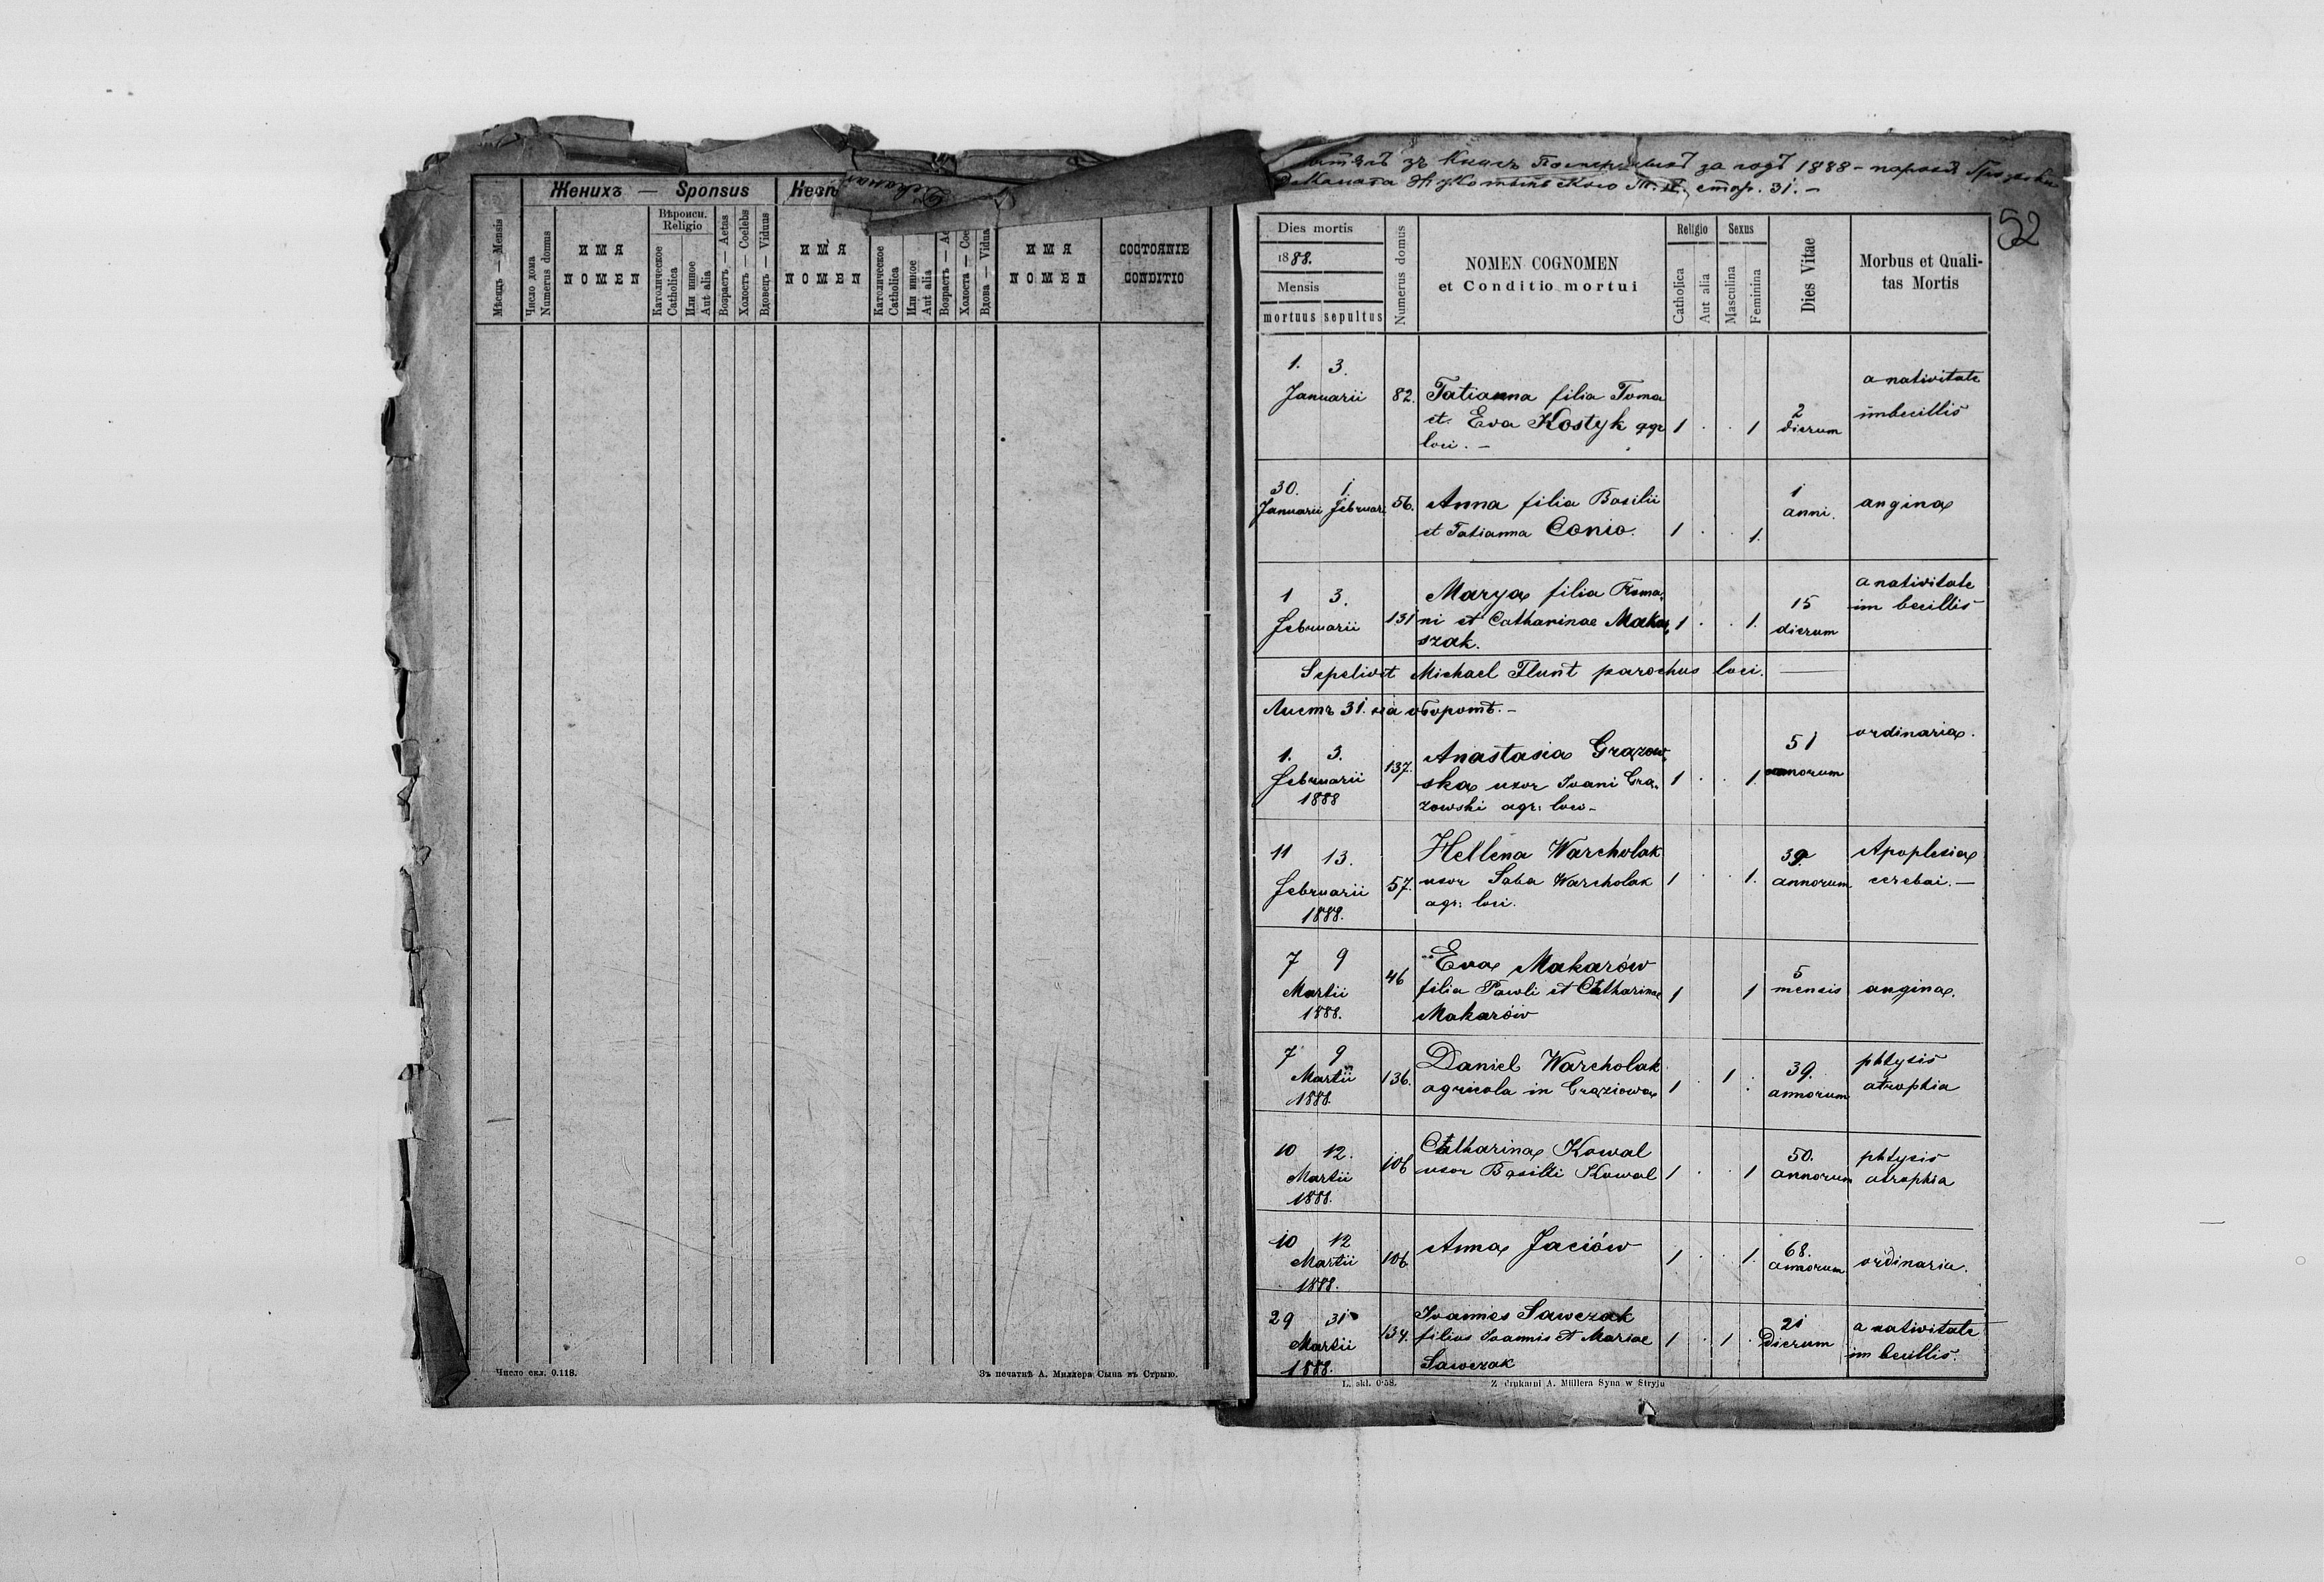 Женихъ — Sponsus
Мѣсяцъ — Mensis
Число дома
Numerus domus
ИМЯ
NOMEN
Вѣроисп.
Religio
Католическое
Catholica
Или инное
Aut alia
Возрастъ — Aetas
Холостъ — Coelebs
Вдовецъ — Viduus
ИМЯ
NOMEN
Католическое
Catholica
Или инное
Aut alia
Вдова — Vidua
ИМЯ
NOMEN
СОСТОЯНІЕ
CONDITIO
Число скл. 0.118.
Зъ печатнѣ А. Миллера Сына въ Стрыю.
зъ Книгъ за годъ 1888 – парохія
стор. 31. –
52
Dies mortis
1888.
Mensis
mortuus sepultus
Numerus domus
NOMEN COGNOMEN
et Conditio mortui
Religio
Catholica
Aut alia
Sexus
Masculina
Feminina
Dies Vitae
Morbus et Quali-
tas Mortis
1. 3.
Januarii 82. Tatianna filia Toma
et Eva Kostyk agr 1 . . 1 2 dierum a nativitate imbecillis
loci. –
30. 1
Januarii Februar. 56. Anna filia Basilii 1 anni. angina
et Tatianna Conio. 1 . . 1.
1 3. Marya filia Roma- a nativitate
Februarii 131 ni et Catharinae Maka- 1 . . 1. 15 dierum im becillis
szak.
Sepelivit Michael Flunt parochus loci.
Листъ 31. на оборотѣ. –
1. 3. 137. Anastasia Grązow- 51 ordinaria.
Februarii ska uxor Ivani Grą- 1 . . 1. annorum
1888 zowski agr: loci –
11 13. Hellena Warcholak 39. Apoplexia
Februarii 57. uxor Saba Warcholak 1 . . 1. annorum cerebai. –
1888. agr: loci.
7 9 46 Eva Makarów 5
Martii filia Pawli et Catharinae 1 1 mensis angina.
1888. Makarów
7 9 Daniel Warcholak 39. phtysis
Martii 136. agricola in Grąziowa 1 . 1 . annorum atrophia
1888.
10 12. 106 Catharina Kowal 50. phtysis
Martii uxor Basilii Kowal 1 . . 1 annorum atrophia
1888.
10 12 Anna Jaciów 68.
Martii 106. 1 . . 1. annorum ordinaria.
1888.
29 31 Ivannes Sawczak 21 a nativitate
Martii 134. filius Joannis et Mariae 1 . 1 . Dierum im becillis.
1888. Sawczak
L. skl. 0·58.
Z drukarni A. Müllera Syna w Stryju